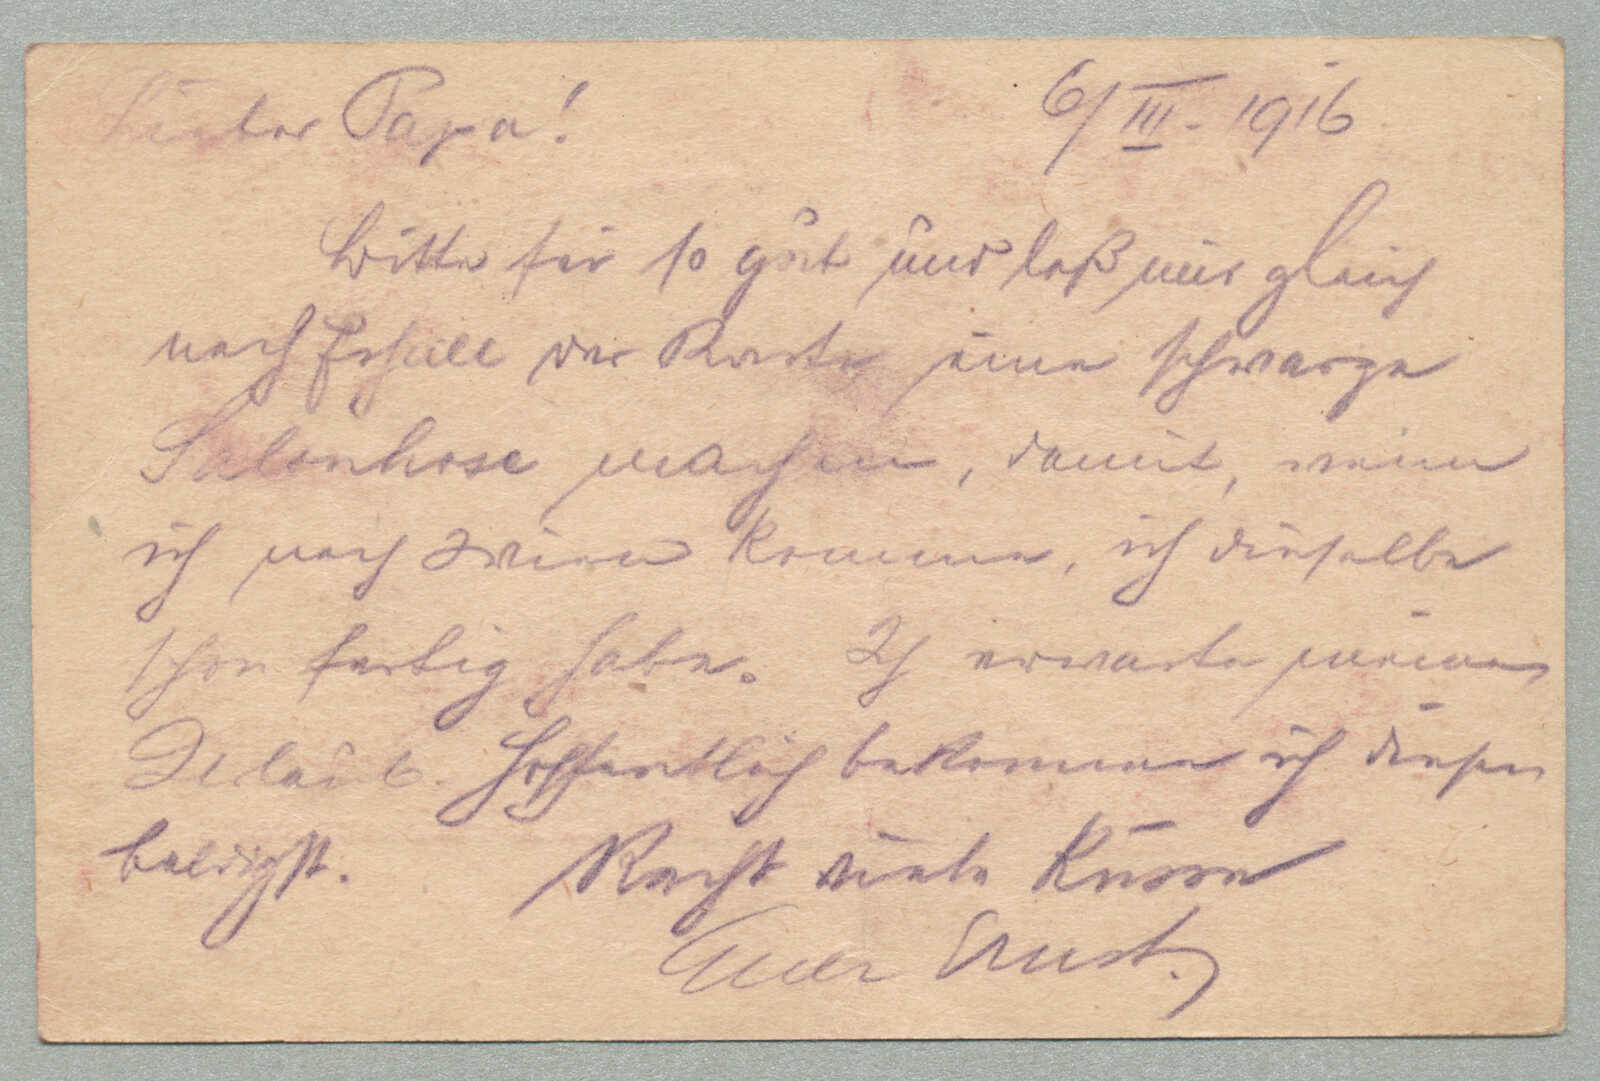 Lieber Papa! 6/III. 1916
Bitte sei so gut und laß mir gleich
nach Erhalt der Karte eine schwarze
Salonhose machen, damit, wenn
ich nach Wien komme, ich dieselbe
schon fertig habe. Ich erwarte meinen
Urlaub. Hoffentlich bekomme ich diesen
baldigst. Recht viele Küsse
Euer Ernst.